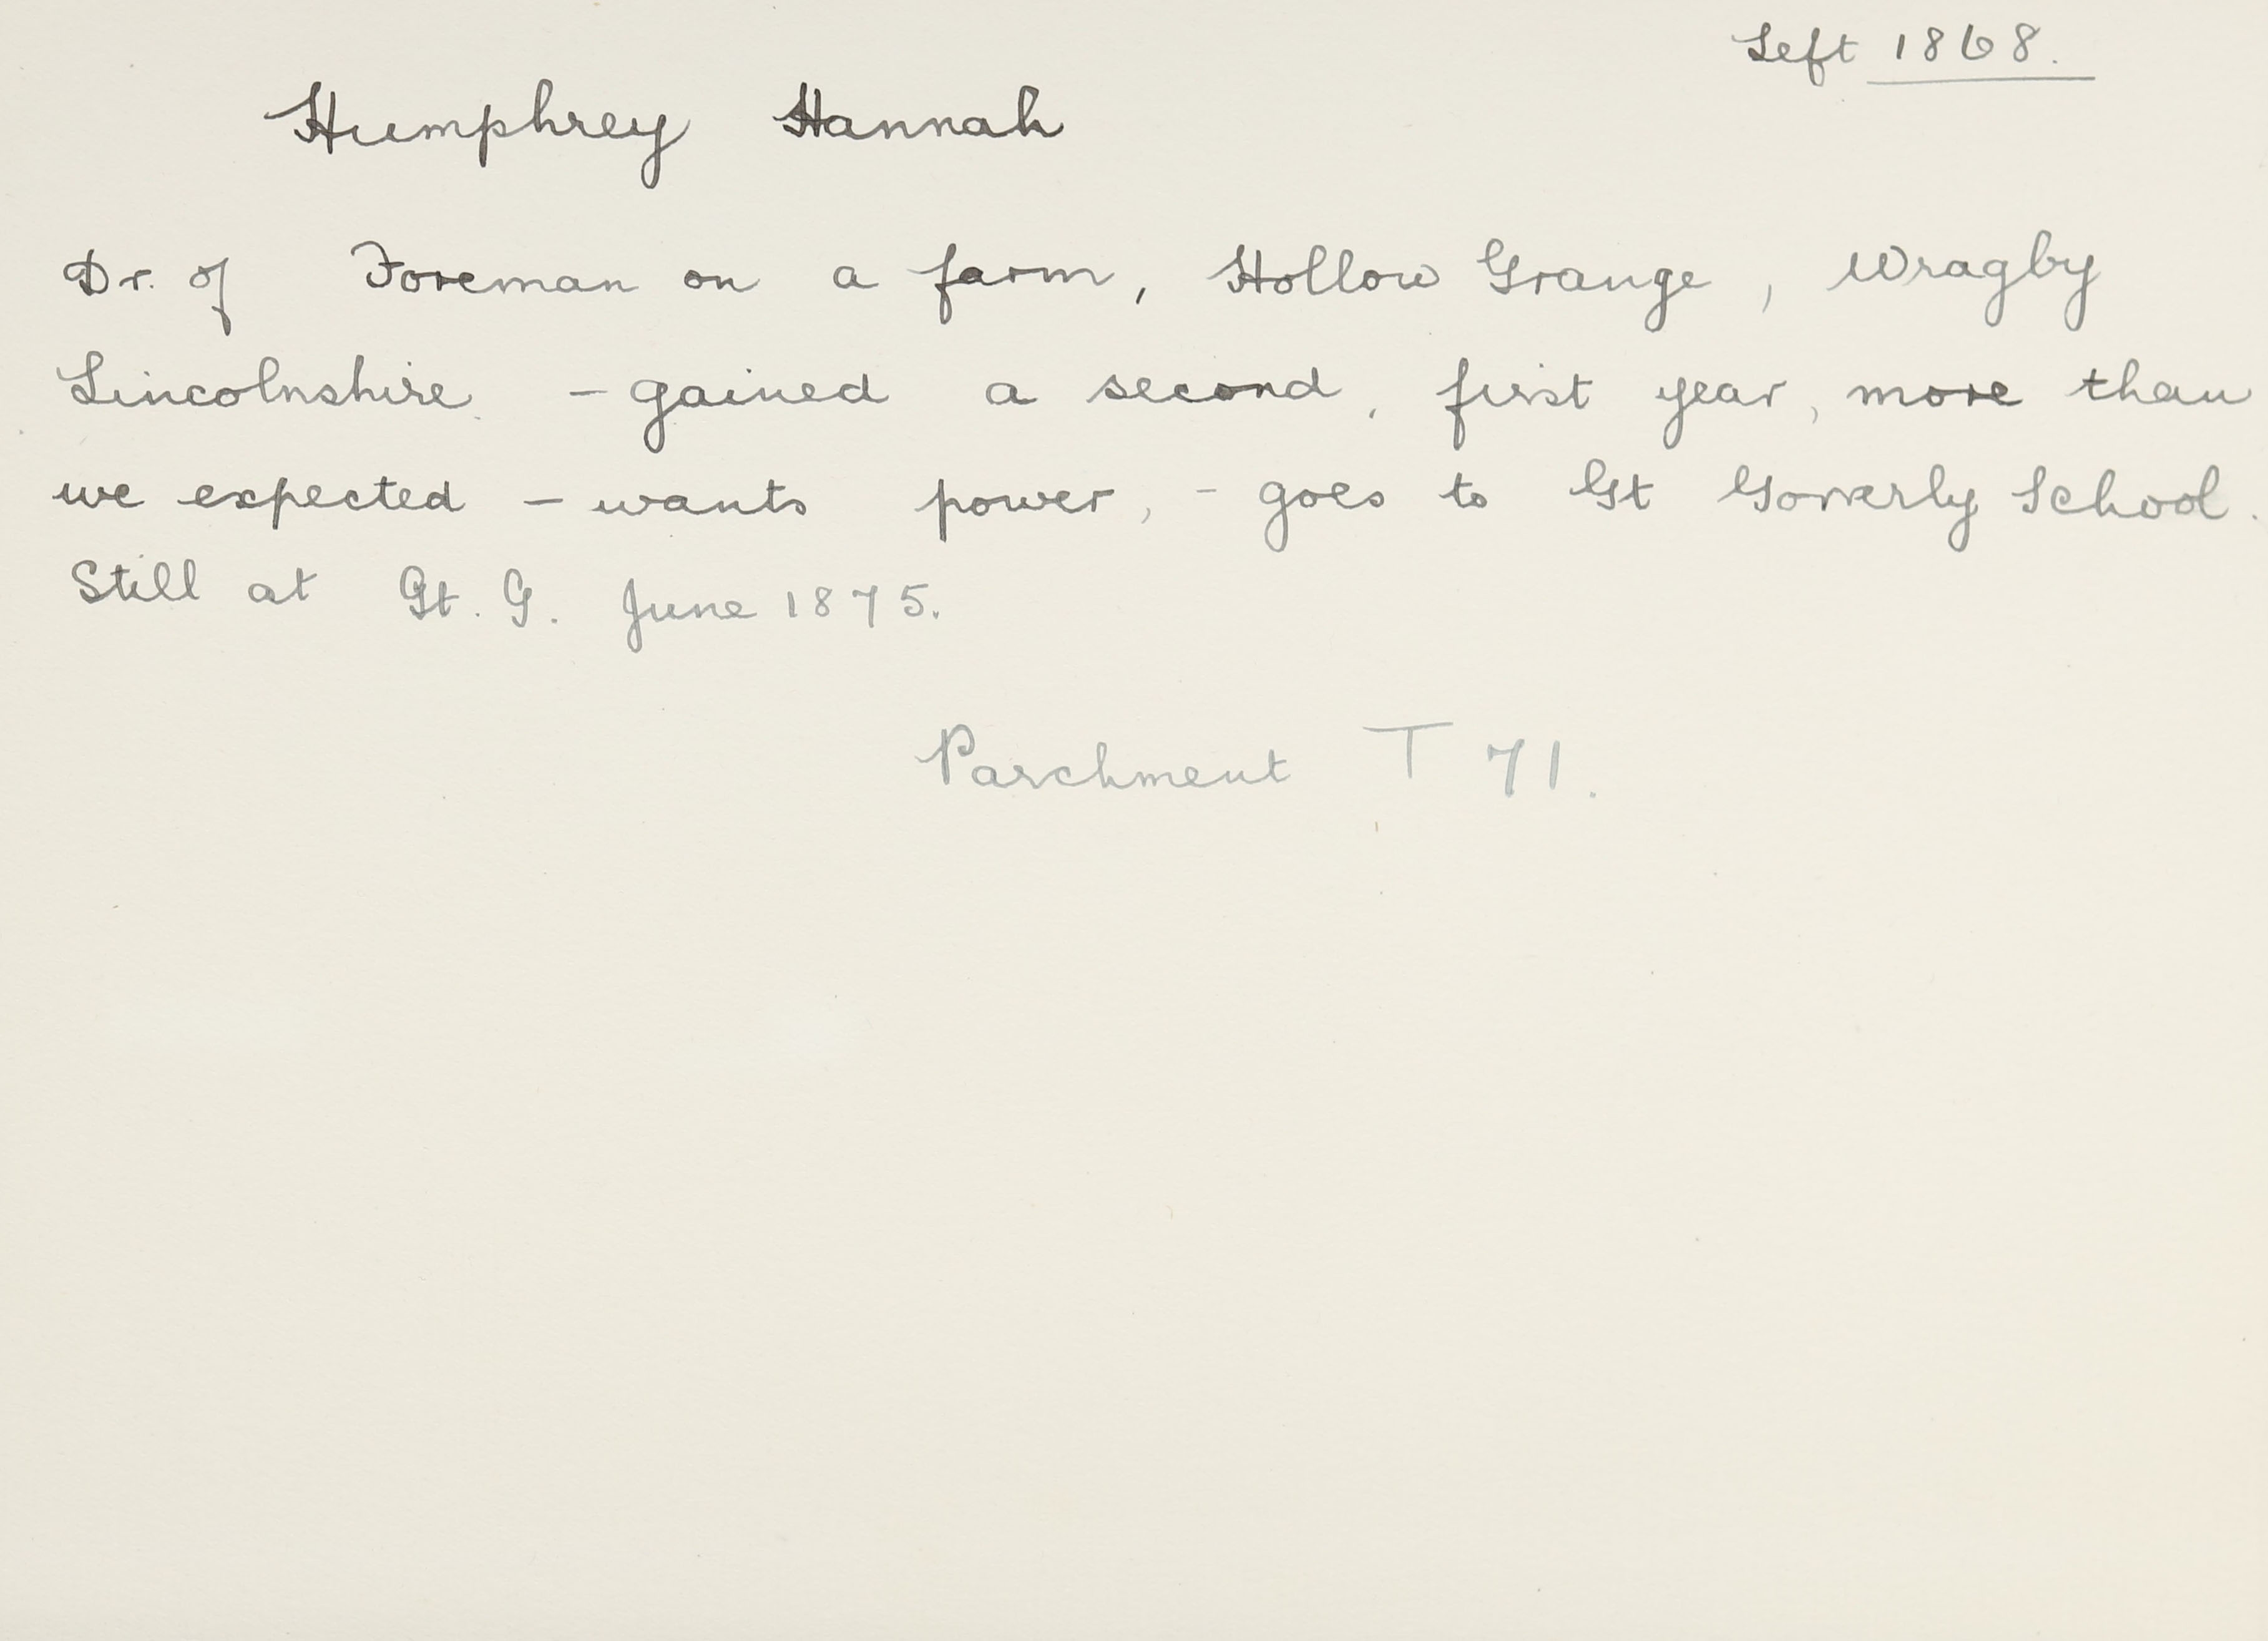 Left 1868.
Humphrey Hannah
Dr. of Foreman on a farm, Hollow Grange, Wragby
Lincolnshire. - gained a second, first year, more than
we expected - wants power, - goes to Gt Gonerly School.
Still at Gt. G. June 1875.
Parchment T 71.